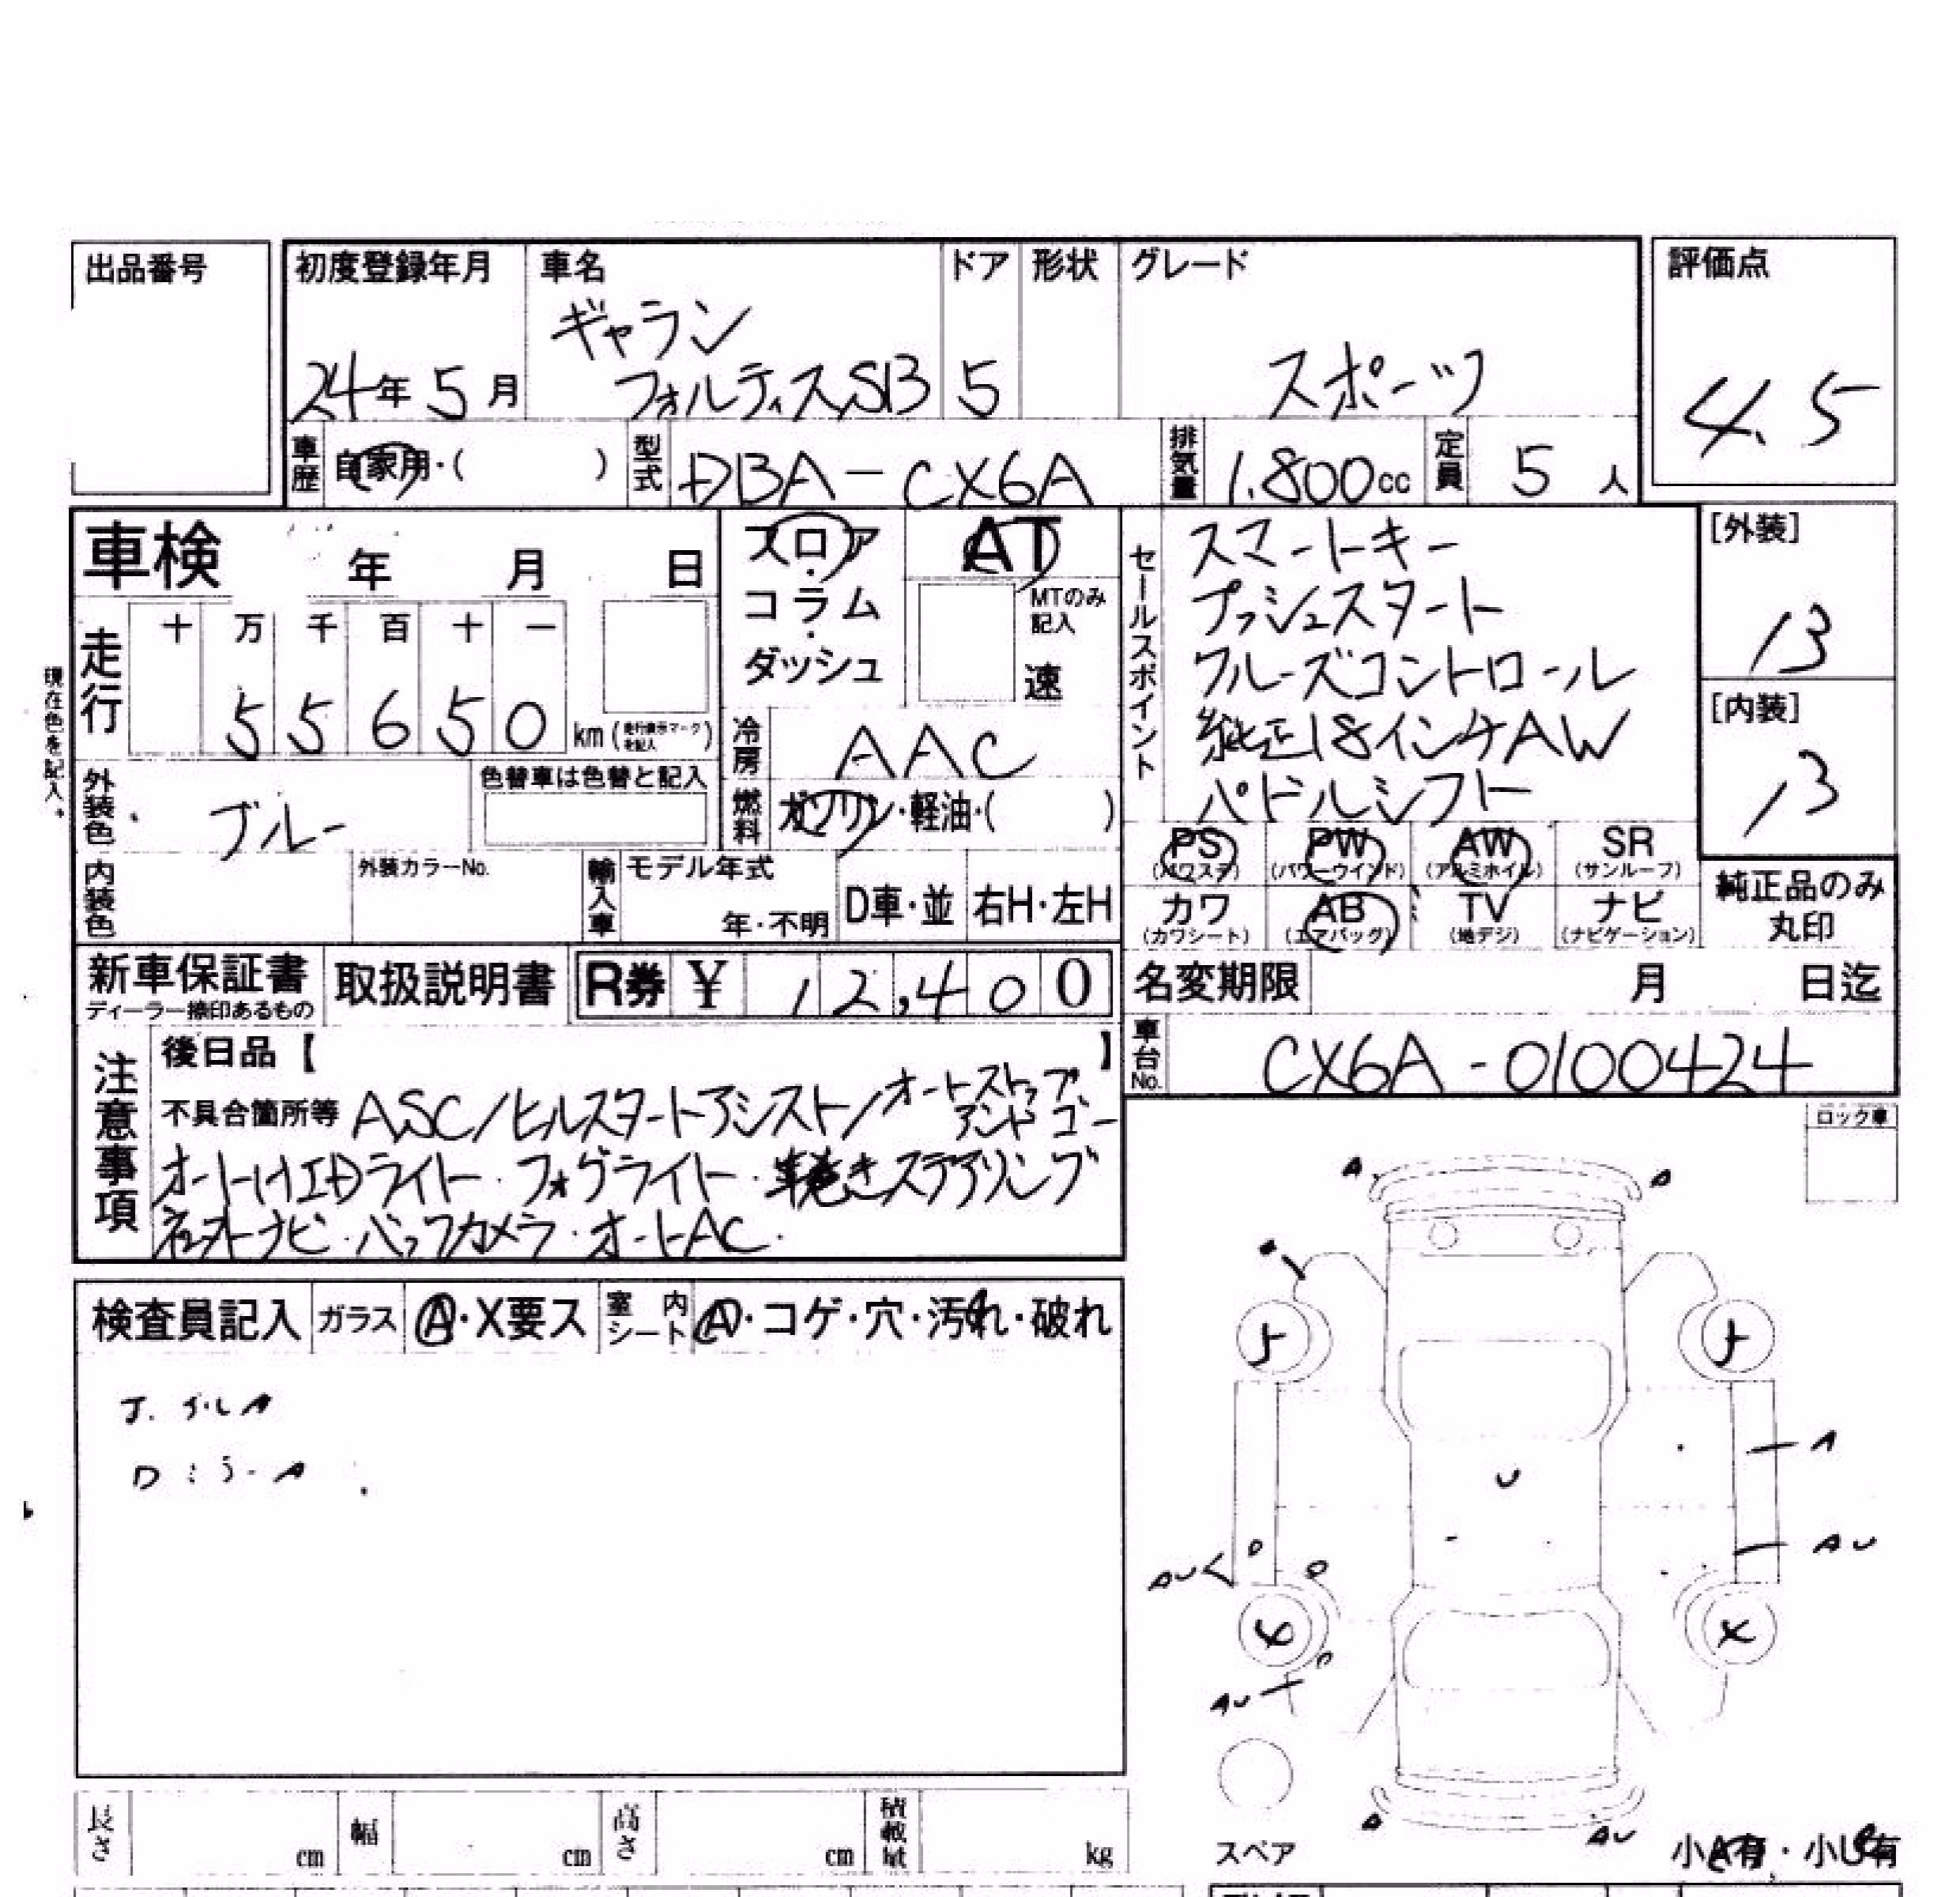 出品番号
初度登録年月 車名 ドア 形状 グレード 評価点
ギャラン
24年5月 フォルティスSB 5 スポーツ 4.5
車歴 自家用・( ) 型式 DBA-CX6A 排気量 1.800cc 定員 5人
車検 年 月 日
フロア・コラム・ダッシュ
AT
MTのみ記入
速
走行 十 万 千 百 十 一
5 5 6 5 0 km
現在色を記入。
外装色 ブルー 色替車は色替と記入
冷房 AAC
燃料 ガソリン・軽油・( )
内装色 外装カラーNo. 輸入車 モデル年式 年・不明 D車・並 右H・左H
セールスポイント
スマートキー
プッシュスタート
クルーズコントロール
純正18インチAW
パドルシフト
[外装]
13
[内装]
13
PS PW AW SR
(パワステ) (パワーウインド) (アルミホイル) (サンルーフ)
カワ AB TV ナビ
(カワシート) (エアバッグ) (地デジ) (ナビゲーション)
純正品のみ
丸印
新車保証書 取扱説明書 R券 ¥ 12,400
ディーラー捺印あるもの
名変期限 月 日迄
車台No. CX6A-0100424
注意事項
後日品【 】
不具合箇所等 ASC/ヒルスタートアシスト/オートストップアンドゴー
オートHIDライト・フォグライト・革巻きステアリング
社外ナビ・バックカメラ・オートAC.
ロック車
検査員記入 ガラス A・X要ス 室内シート A・コゲ・穴・汚れ・破れ
A
A
A
U
AU
AU
AU
A
AU
スペア
小A有・小U有
長さ cm 幅 cm 高さ cm 積載 kg